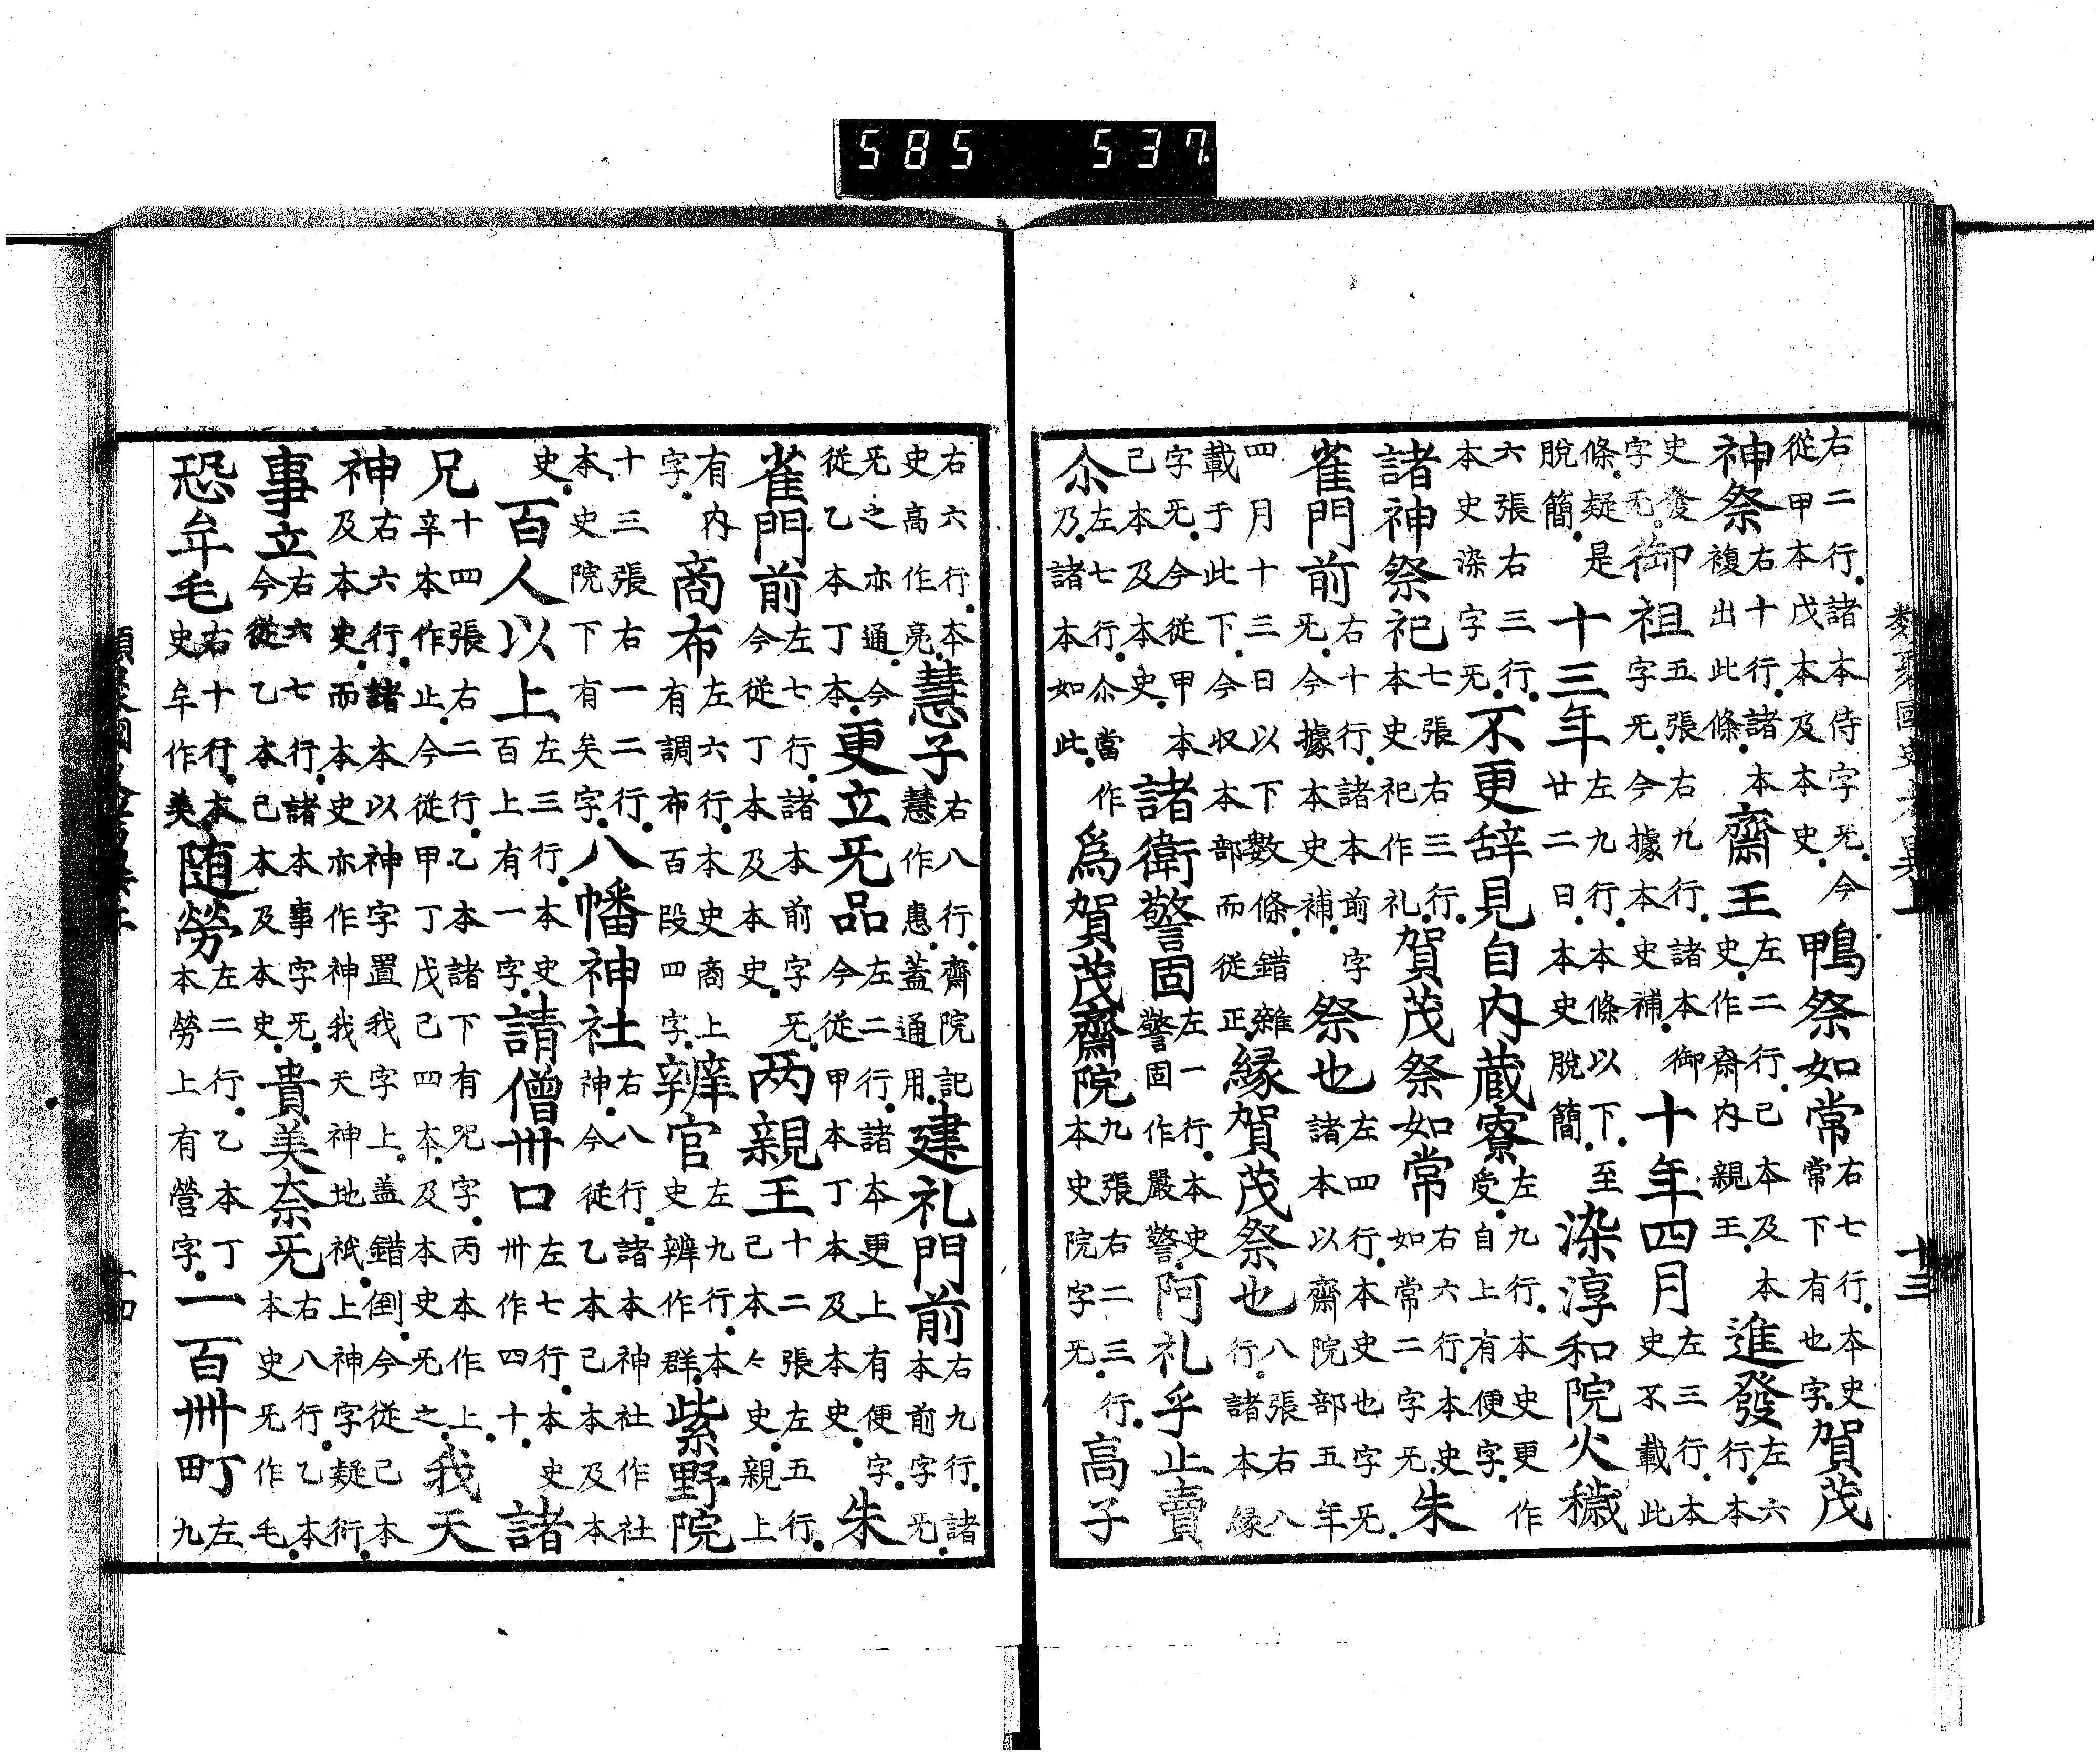 585 537
右二行諸本侍字旡今
從甲本戊本及本史
鴨祭如常
右七行本史
常下有也字
賀茂
神祭
右十行諸本
複出此條
齋王
左二行己本及本
史作齋内親王
進發
左六行本
史發五張右九行諸本御
字旡
御祖
字旡今據本史補
十年四月
左三行本
史不載此
條疑是
脫簡
十三年
左九行本條以下至
廿二日本史脫簡
染淳和院火穢
六張右三行
本史染字旡
不更辞見自内蔵寮
左九行本史更作
受自上有便字
諸神祭祀
七張右三行
本史祀作礼
賀茂祭如常
右六行本史
如常二字旡
朱
雀門前
右十行諸本前字
旡今據本史補
祭也
左四行本史也字旡
諸本以齋院部五年
四月十三日以下數條錯雜
載于此下今収本部而從正
縁賀茂祭也
八張右八
行諸本縁
字旡今從甲本
己本及本史
諸衛警固
左一行本史
警固作嚴警
阿礼乎止賣
尒
左七行尒當作
乃諸本如此
爲賀茂齋院
九張右二三行
本史院字旡
高子
類聚國史考異上
十三
右六行本
史高作亮
慧子
右八行齋院記
慧作惠蓋通用
建礼門前
右九行諸
本前字旡
旡之亦通今
從乙本丁本
更立旡品
左二行諸本更上有便字
今從甲本丁本及本史
朱
雀門前
左七行諸本前字旡
今從丁本及本史
两親王
十二張左五行
己本今史親上
有内
字
商布
左六行本史商上
有調布百段四字
辨官
左九行本
史辨作群
紫野院
十三張右一二行
本史院下有矣字
八幡神社
右八行諸本神社作社
神今從乙本己本及本
史
百人以上
左三行本史
百上有一字
請僧卅口
左七行本史
卅作四十
諸
兄
十四張右二行乙本諸下有咒字丙本作上
辛本作止今從甲丁戊己四本及本史旡之
我天
神
右六行諸本以神字置我字上蓋錯倒今從己本
及本史而本史亦作神我天神地祇上神字疑衍
事立
右六七行諸本事字旡
今從乙本己本及本史
貴美奈旡
右八行乙本
本史旡作毛
恐牟毛
右十行本
史牟作美
随勞
左二行乙本丁
本勞上有營字
一百卅町
左
九
十四